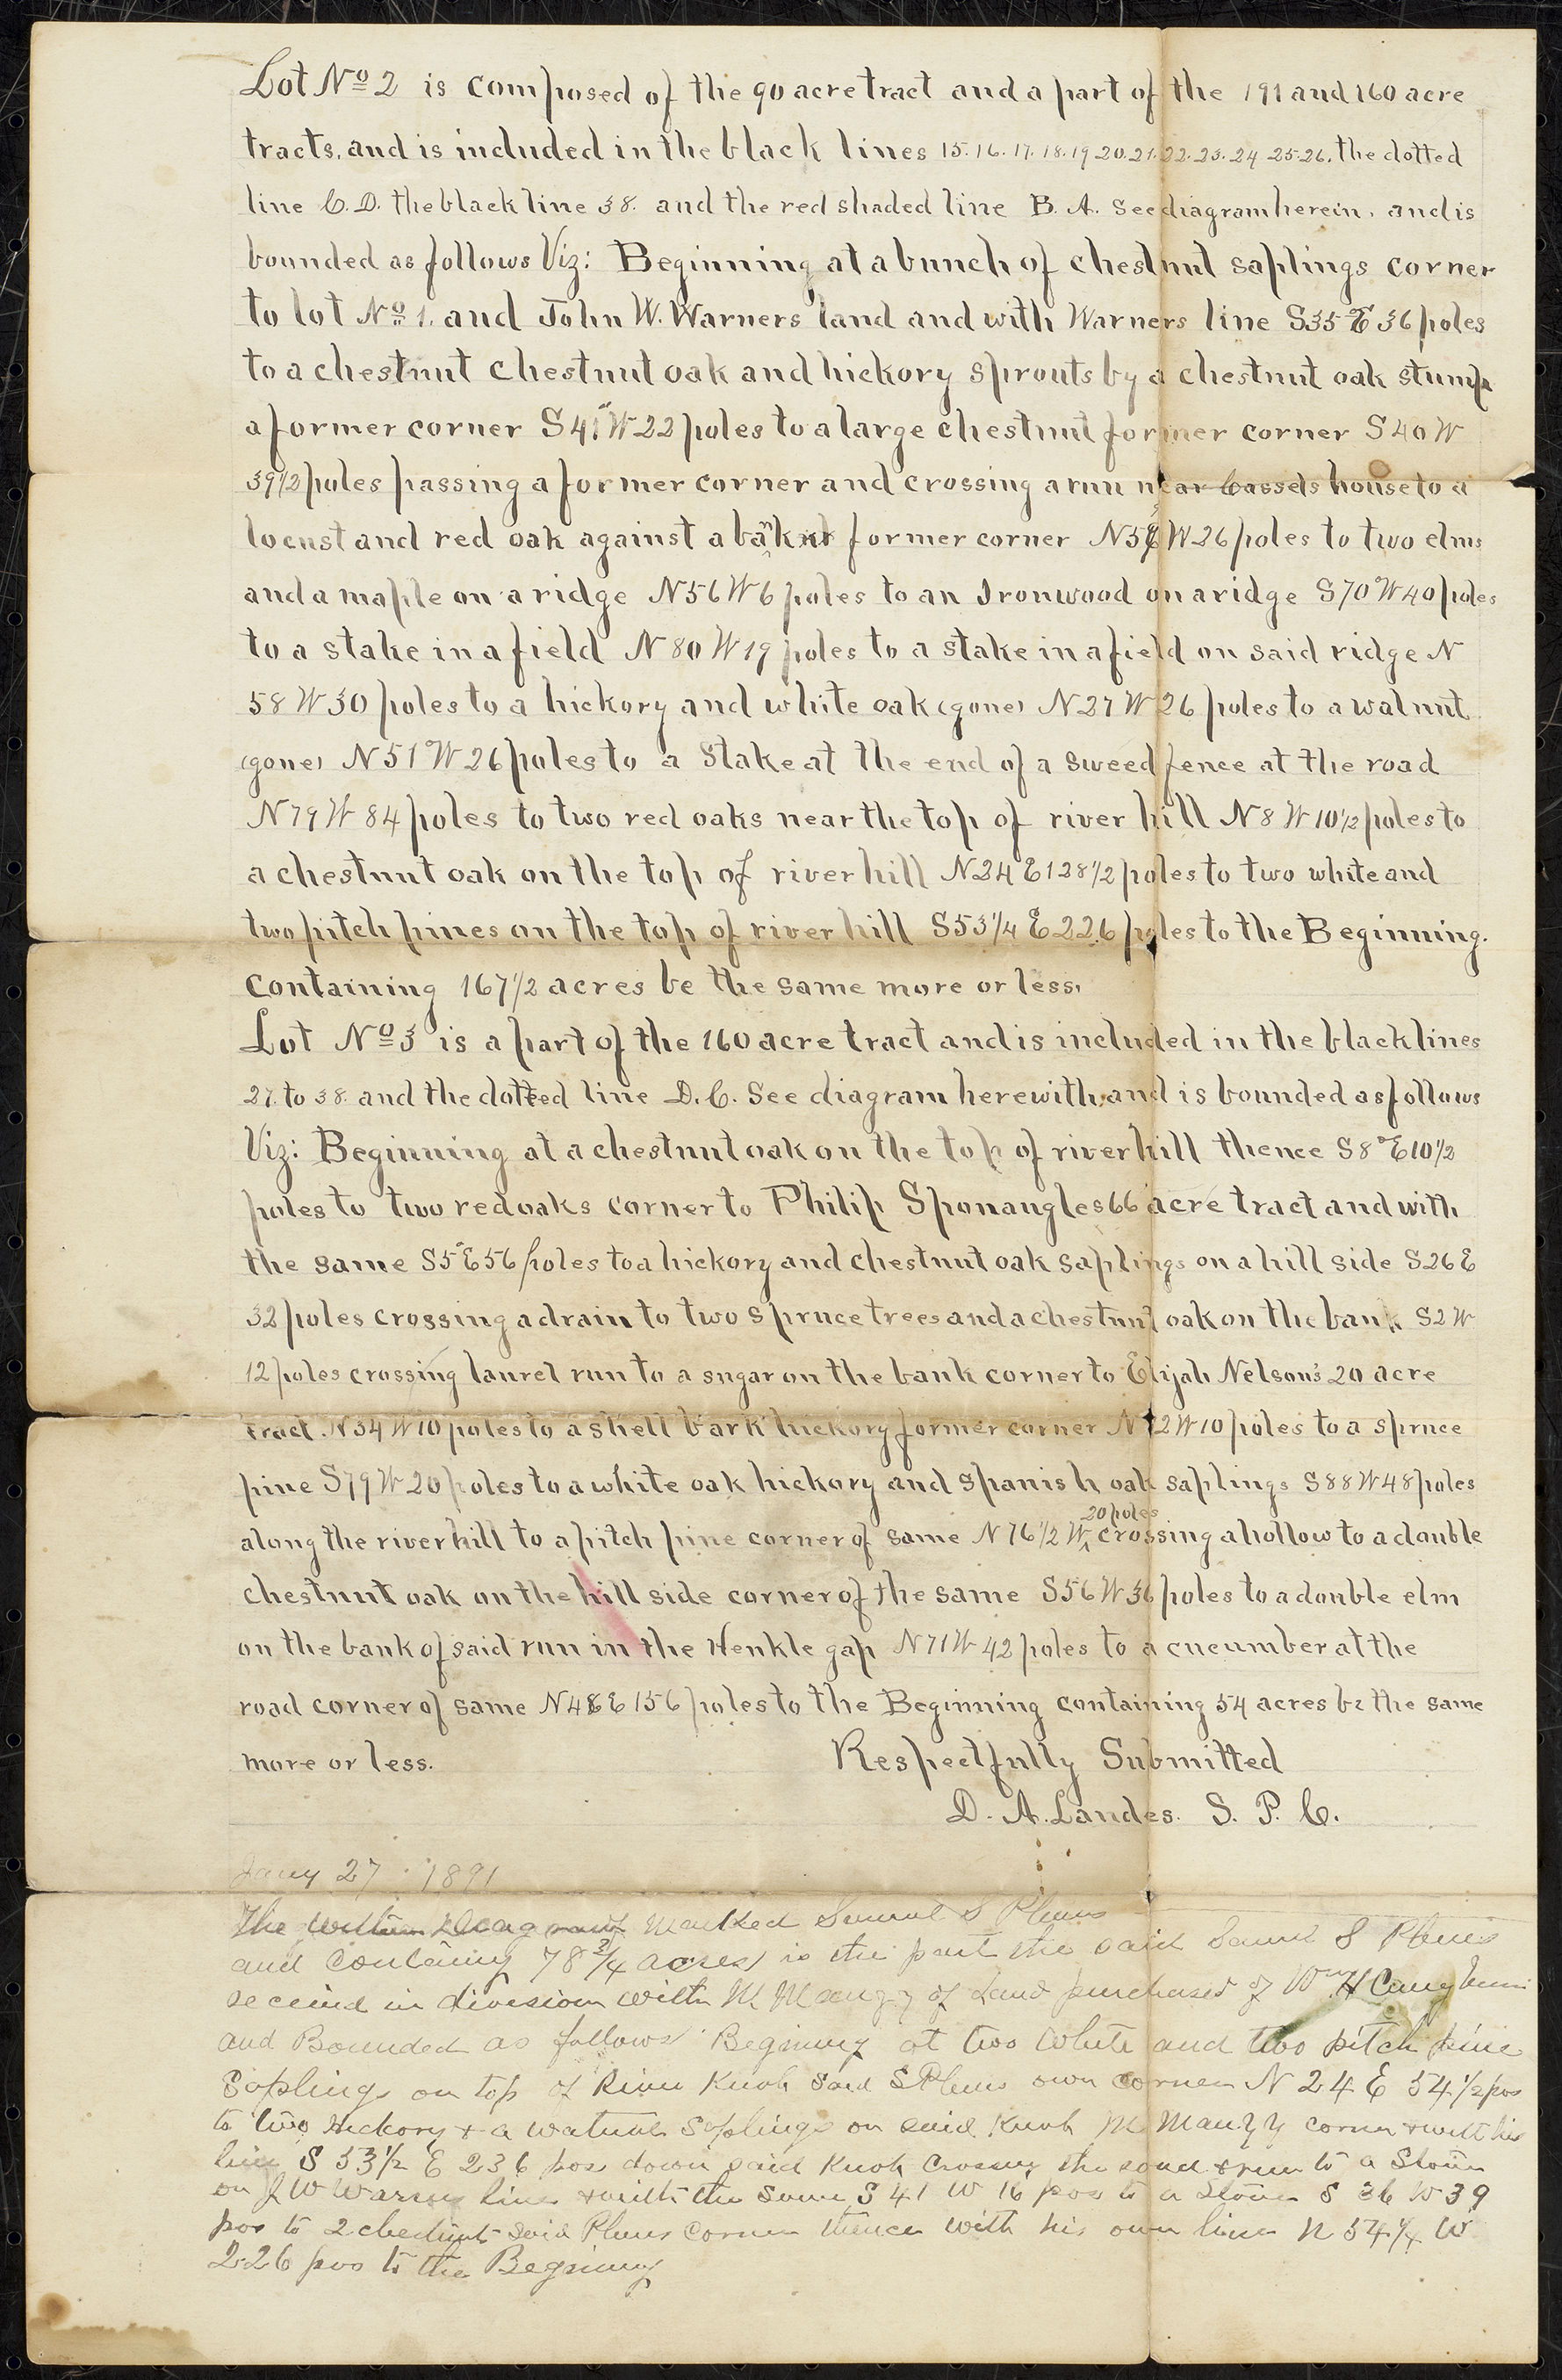 Lot No 2 is composed of the 90 acre tract and a part of the 191 and 160 acre
tracts, and is included in the black lines 15. 16. 17. 18. 19 20. 21. 22. 23. 24 25. 26. the dotted
line C. D. the black line 38. and the red shaded line B. A. See diagram herein, and is
bounded as follows Viz: Beginning at a bunch of chestnut saplings corner
to lot No 1. and John W. Warners land and with Warners line S35 E 36 poles
to a chestnut chestnut oak and hickory sprouts by a chestnut oak stump
a former corner S41 W 22 poles to a large chestnut former corner S40 W
39 1/2 poles passing a former corner and crossing a run near Cassels house to a
locust and red oak against a bank former corner W 26 poles to two elms
and a maple on a ridge N56 W 6 poles to an Ironwood on a ridge S70 W 40 poles
to a stake in a field N 80 W 19 poles to a stake in a field on said ridge N
58 W 30 poles to a hickory and white oak (gone) N 27 W 26 poles to a walnut
(gone) N 51 W 26 poles to a Stake at the end of a sweed fence at the road
N 79 W 84 poles to two red oaks near the top of river hill N 8 W 10 1/2 poles to
a chestnut oak on the top of river hill N24 E 128 1/2 poles to two white and
two pitch pines on the top of river hill S53 1/4 E 226 poles to the Beginning.
containing 167 1/2 acres be the same more or less.
Lot No 3 is a part of the 160 acre tract and is included in the black lines
27. to 38. and the dotted line D. C. See diagram herewith, and is bounded as follows
Viz: Beginning at a chestnut oak on the top of river hill thence S8° E 10 1/2
poles to two red oaks corner to Philip Sponangles 66 acre tract and with
the same S5° E 56 poles to a hickory and chestnut oak saplings on a hill side S26 E
32 poles crossing a drain to two spruce trees and a chestnut oak on the bank S2 W
12 poles crossing laurel run to a sugar on the bank corner to Elijah Nelson's 20 acre
tract. N34 W 10 poles to a shell bark hickory former corner W 10 poles to a spruce
pine S79 W 20 poles to a white oak hickory and Spanish oak saplings S88 W 48 poles
along the river hill to a pitch pine corner of same N 76 1/2 W 20 poles crossing a hollow to a double
chestnut oak on the hill side corner of the same S56 W 36 poles to a double elm
on the bank of said run in the Henkle gap N71 W 42 poles to a cucumber at the
road corner of same E 156 poles to the Beginning containing 54 acres be the same
more or less. Respectfully Submitted
D. A. Landes. S. P. C.
Jany 27 1891
The within Diagram Marked Samuel S Plum
and Containg 78 3/4 acres is the part the said Saml S Plum
received in division with M Mauzy of Land purchased of Wm H
and Bounded as follows Begining at two White and two pitch pine
Saplings on top of River Knob Said S Plums own corner N 24 E 54 1/2 pos
to two hickory & a walnut Saplings on said Knob M Mauzy corner & with his
line S 53 1/2 E 236 pos down said Knob Crossing the road & run to a Stone
on J W line & with the same S 41 W 16 pos to a Stone S 36 W 39
pos to 2 chestnut said Plums Corner thence with his own line N 54 1/4 W
226 pos to the Begining